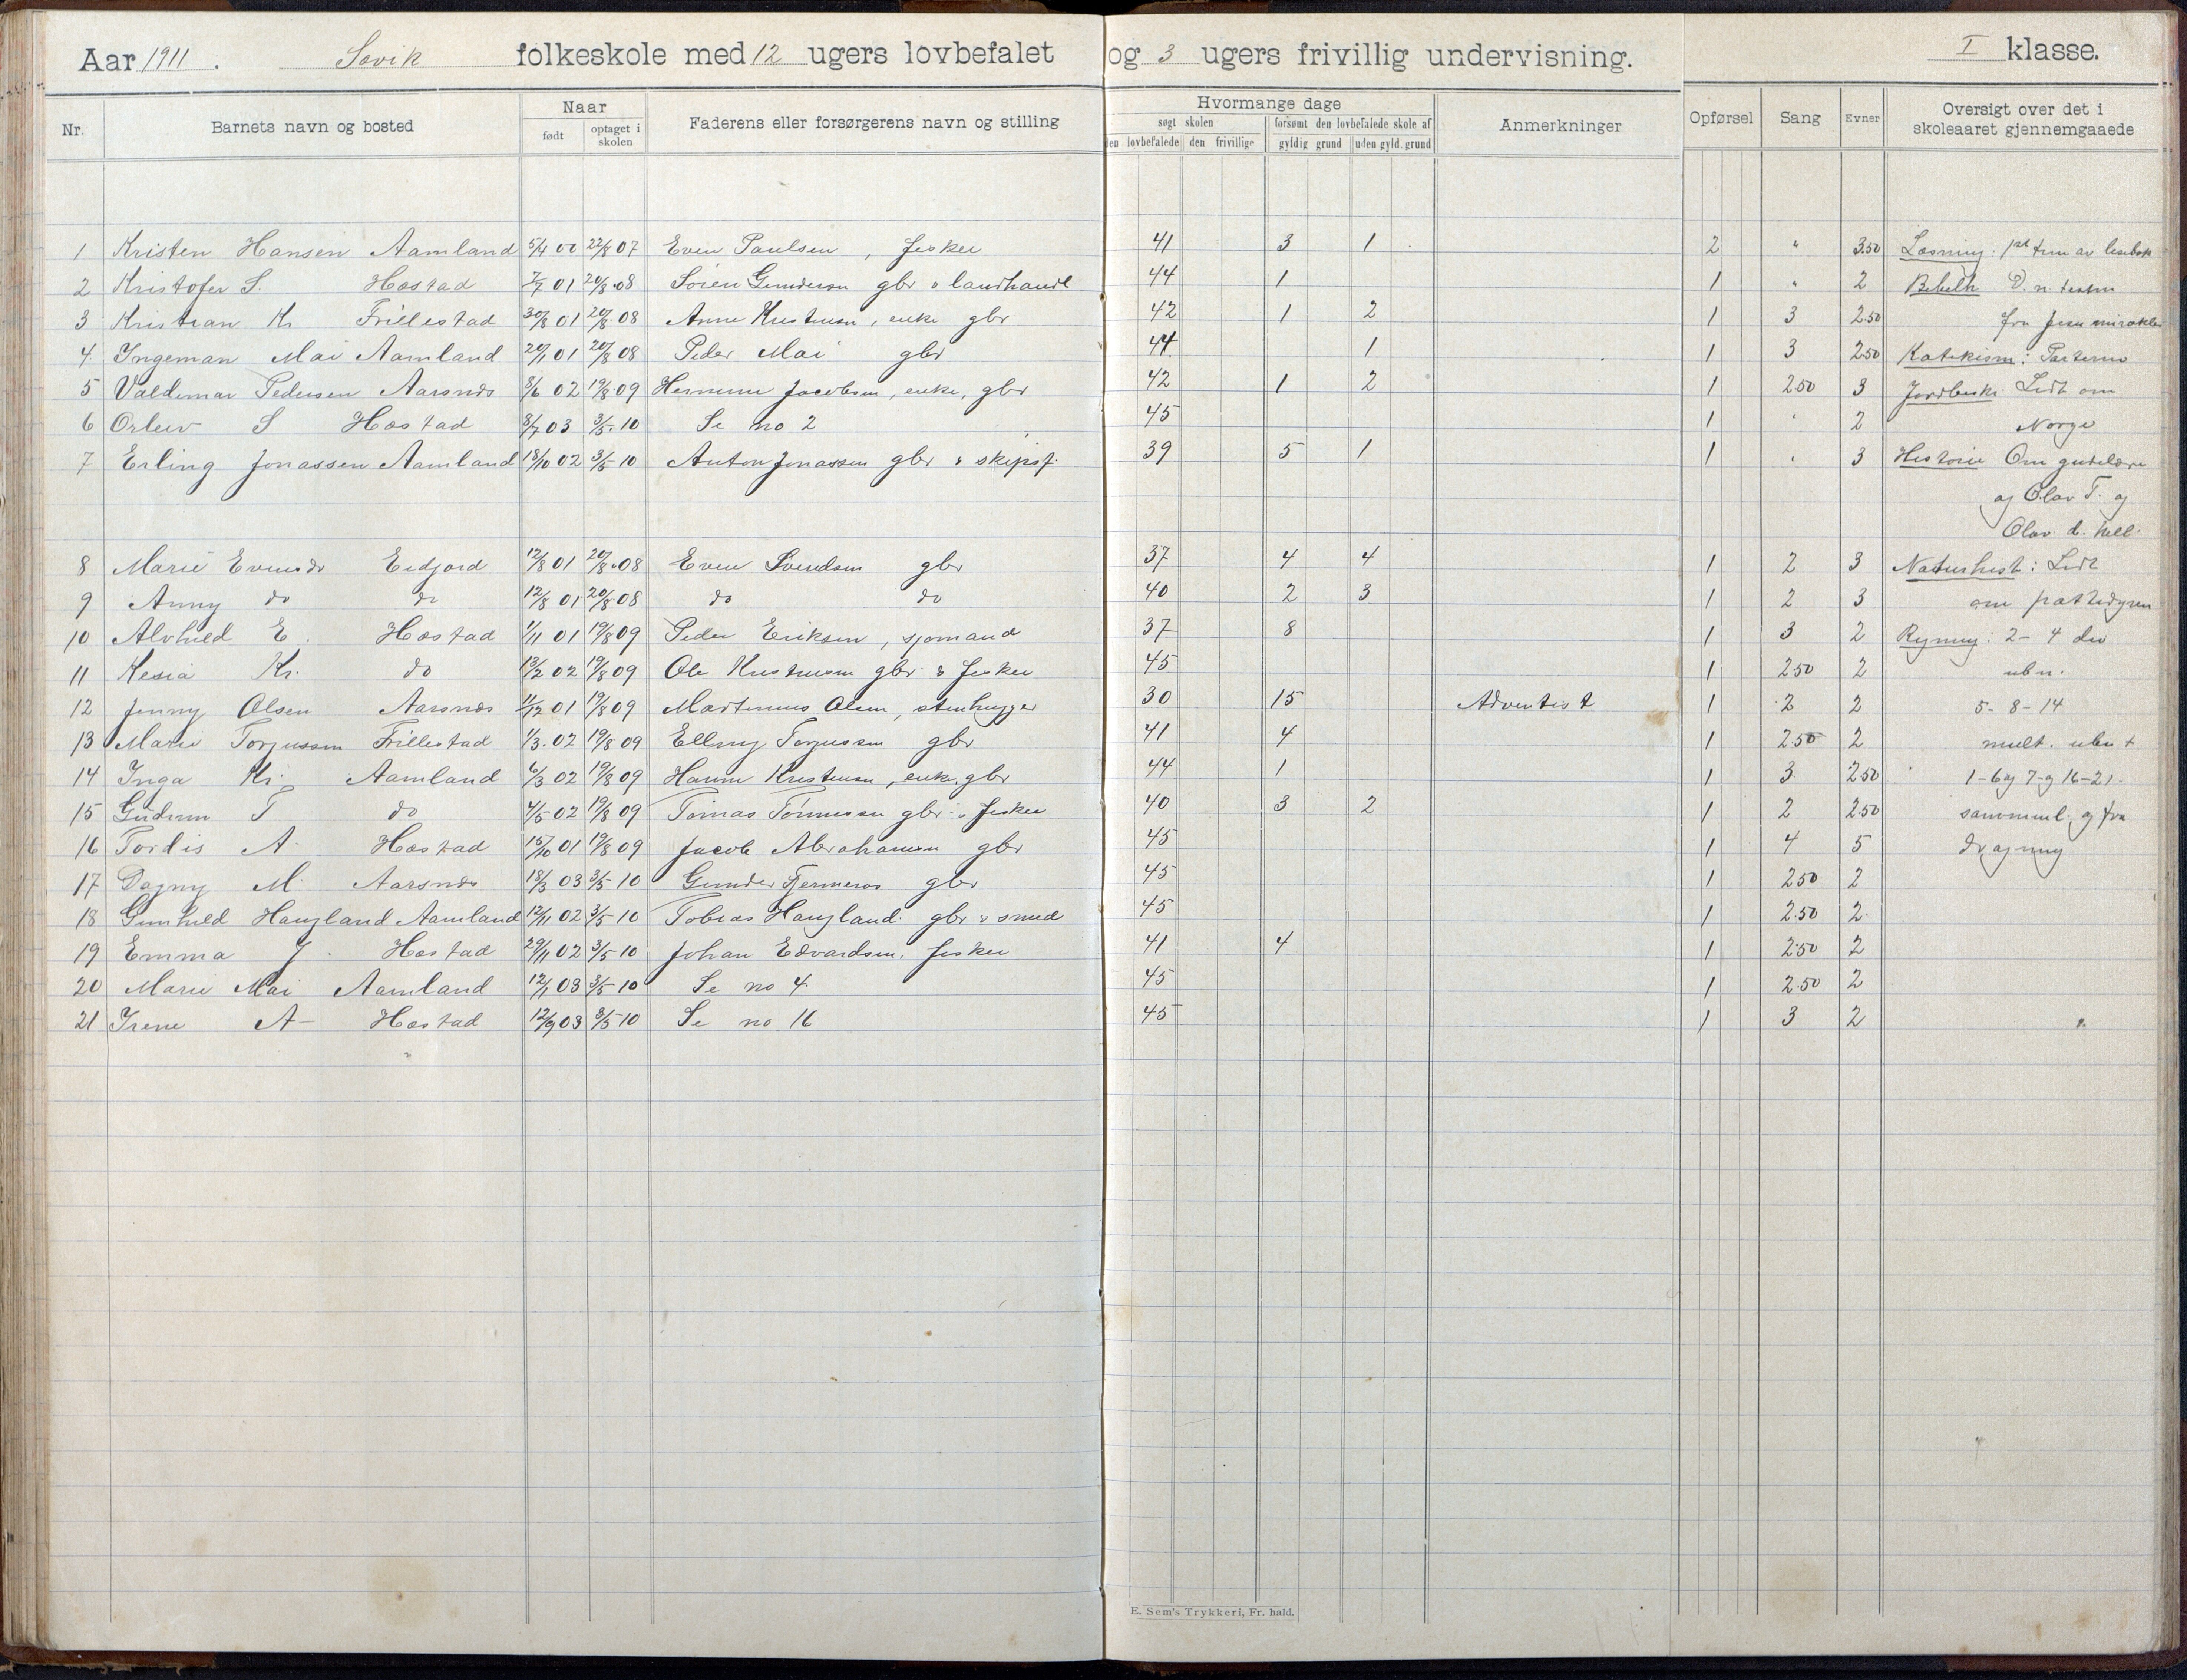 Aar 1911. Søvik folkeskole med 12 ugers lovbefalet og 3 ugers frivillig undervisning. I klasse.
Nr. Barnets navn og bosted Naar født optaget i skolen Faderens eller forsørgerens navn og stilling Hvormange dage søgt skolen den lovbefalede den frivillige forsømt den lovbefalede skole af gyldig grund uden gyld. grund Anmerkninger Opførsel Sang Evner Oversigt over det i skoleaaret gjennemgaaede
1 Kristen Hansen Aamland 5/4 00 22/8 07 Even Paulsen, fisker 41 3 1 2 " 3.50 Læsning: 1ste trin av lesebok
2 Kristofer S. Hæstad 7/7 01 20/8 08 Søren Gundersen gbr & landhandl 44 1 1 " 2 Bibelh D. n. testm
3 Kristian Kr. Trillestad 30/8 01 20/8 08 Anne Kristensen, enke gbr 42 1 2 1 3 2.50 fra Jesu mirakler
4 Ingeman Mai Aamland 20/1 01 20/8 08 Peder Mai gbr 44 1 1 3 2.50 Katekism: Parterne
5 Valdemar Pedersen Aarsnes 8/6 02 19/8 09 Hermine Jacobsen, enke, gbr 42 1 2 1 2.50 3 Jordbeskr. Lidt om
6 Orleiv S Hæstad 8/7 03 3/5 10 Se no 2 45 1 " 2 Norge
7 Erling Jonassen Aamland 18/10 02 3/5 10 Anton Jonassen gbr & skipsf. 39 5 1 1 " 3 Historie Om gudelære
og Olav T. og
Olav d. hell.
8 Marie Evensdr Eidjord 12/8 01 20/8 08 Even Svendsen gbr 37 4 4 1 2 3 Naturhist: Lidt
9 Anny do do 12/8 01 20/8 08 do do 40 2 3 1 2 3 om pattedyren
10 Alvhild E. Hæstad 1/11 01 19/8 09 Peder Eriksen, sjømand 37 8 1 3 2 Regning: 2-4 div
11 Kesia Kr. do 13/2 02 19/8 09 Ole Kristensen gbr & fisker 45 1 2.50 2 ubn.
12 Jenny Olsen Aarsnes 11/12 01 19/8 09 Martinius Olsen, stenhugger 30 15 Adventist 1 2 2 5-8-14
13 Marie Torjussen Trillestad 1/3 02 19/8 09 Elling Torjussen gbr 41 4 1 2.50 2 mult. ubn +
14 Inga Kr. Aamland 6/3 02 19/8 09 Hanne Kristensen, enke, gbr 44 1 1 3 2.50 1-6 og 7-9 16-21.
15 Gudrun T do 4/5 02 19/8 09 Tomas Tønnessen gbr & fisker 40 3 2 1 2 2.50 sammenl. og fra
16 Tordis A. Hæstad 15/10 01 19/8 09 Jacob Abrahamsen gbr 45 1 4 5 dragning
17 Dagny M. Aarsnes 18/3 03 3/5 10 Gunder Fjermeros gbr 45 1 2.50 2
18 Gunhild Haugland Aamland 12/11 02 3/5 10 Tobias Haugland gbr & smed 45 1 2.50 2
19 Emma J. Hæstad 29/11 02 3/5 10 Johan Edvardsen, fisker 41 4 1 2.50 2
20 Marie Mai Aamland 12/1 03 3/5 10 Se no 4 45 1 2.50 2
21 Irene A- Hæstad 12/9 03 3/5 10 Se no 16 45 1 3 2
E. Sem's Trykkeri, Fr. hald.